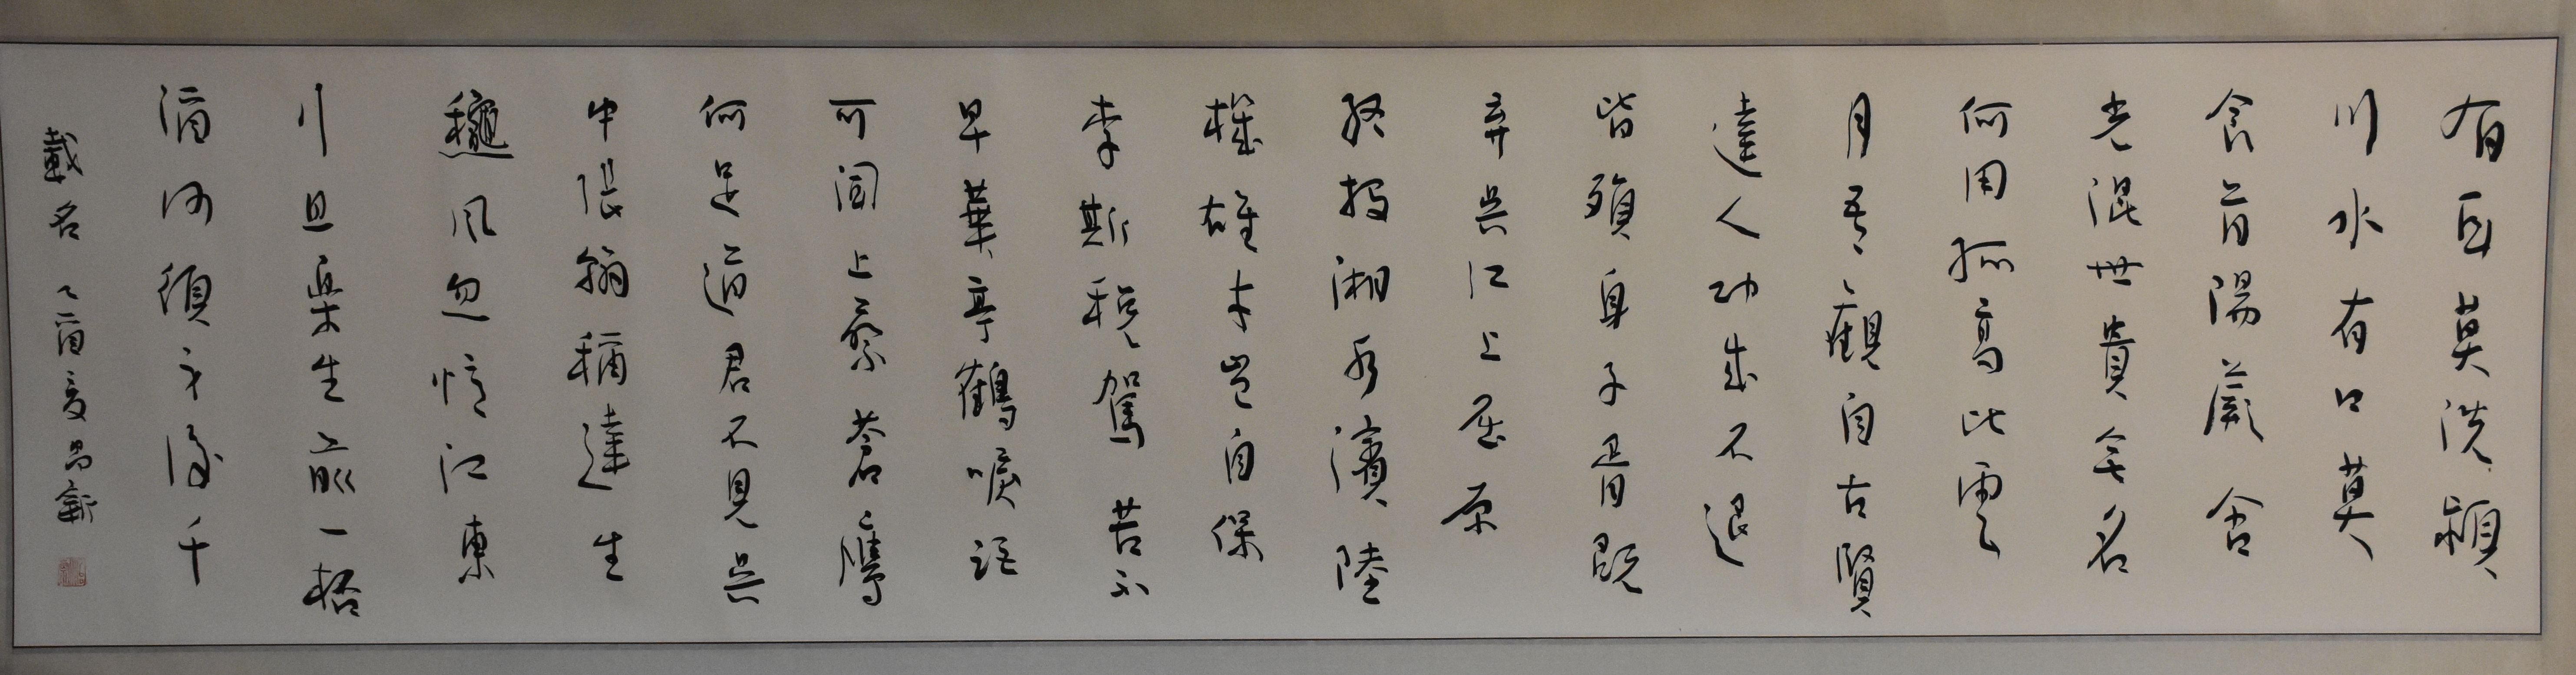 有耳莫洗潁
川水有口莫
食首陽蕨含
光混世貴無名
何用孤高比雲
月吾觀自古賢
達人功成不退
皆殞身子胥既
弃吳江上屈原
終投湘水濱陸
機雄才豈自保
李斯稅駕苦不
早華亭鶴唳詎
可聞上蔡蒼鷹
何足道君不見吳
中張翰稱達生
龝風忽憶江東
行且樂生前一桮
酒何須身後千
載名 乙酉夏昌新